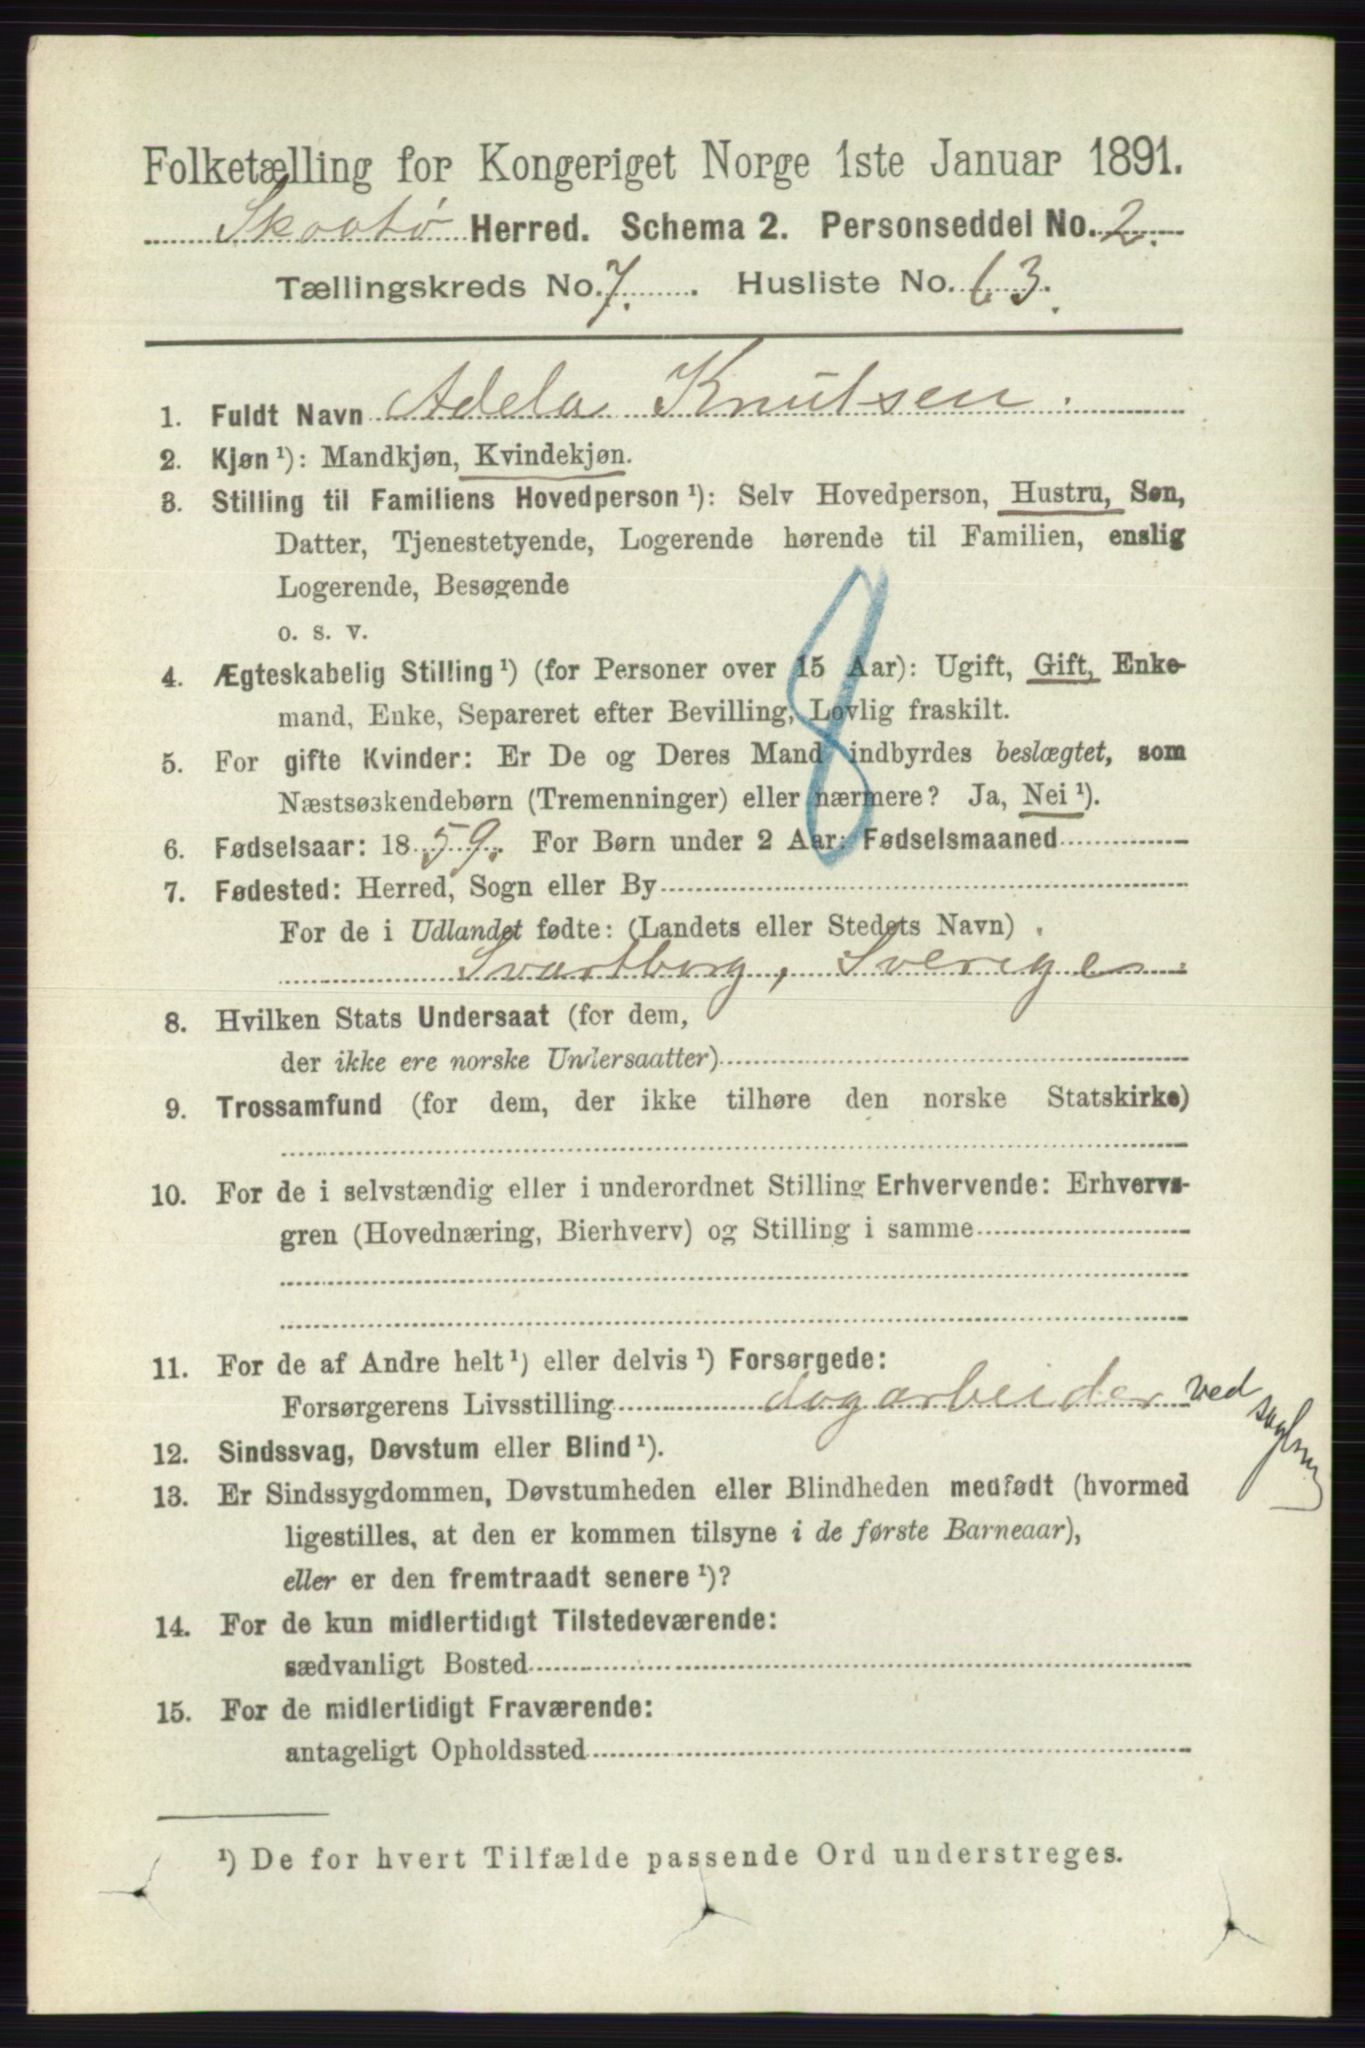 Folketælling for Kongeriget Norge 1ste Januar 1891.
Skaatø Herred. Schema 2. Personseddel No. 2.
Tællingskreds No. 7. Husliste No. 63.
1. Fuldt Navn Adela Knutsen.
2. Kjøn¹): Mandkjøn, Kvindekjøn.
3. Stilling til Familiens Hovedperson¹): Selv Hovedperson, Hustru, Søn,
Datter, Tjenestetyende, Logerende hørende til Familien, enslig
Logerende, Besøgende
o. s. v.
8
4. Ægteskabelig Stilling¹) (for Personer over 15 Aar): Ugift, Gift, Enke-
mand, Enke, Separeret efter Bevilling, Lovlig fraskilt.
5. For gifte Kvinder: Er De og Deres Mand indbyrdes beslægtet, som
Næstsøskendebørn (Tremenninger) eller nærmere? Ja, Nei¹).
6. Fødselsaar: 1859. For Børn under 2 Aar: Fødselsmaaned
7. Fødested: Herred, Sogn eller By
For de i Udlandet fødte: (Landets eller Stedets Navn)
Svartborg, Sverige.
8. Hvilken Stats Undersaat (for dem,
der ikke ere norske Undersaatter)
9. Trossamfund (for dem, der ikke tilhøre den norske Statskirke)
10. For de i selvstændig eller i underordnet Stilling Erhvervende: Erhvervs-
gren (Hovednæring, Bierhverv) og Stilling i samme
11. For de af Andre helt¹) eller delvis¹) Forsørgede:
Forsørgerens Livsstilling dagarbeider ved
12. Sindssvag, Døvstum eller Blind¹).
13. Er Sindssygdommen, Døvstumheden eller Blindheden medfødt (hvormed
ligestilles, at den er kommen tilsyne i de første Barneaar),
eller er den fremtraadt senere¹)?
14. For de kun midlertidigt Tilstedeværende:
sædvanligt Bosted
15. For de midlertidigt Fraværende:
antageligt Opholdssted
¹) De for hvert Tilfælde passende Ord understreges.